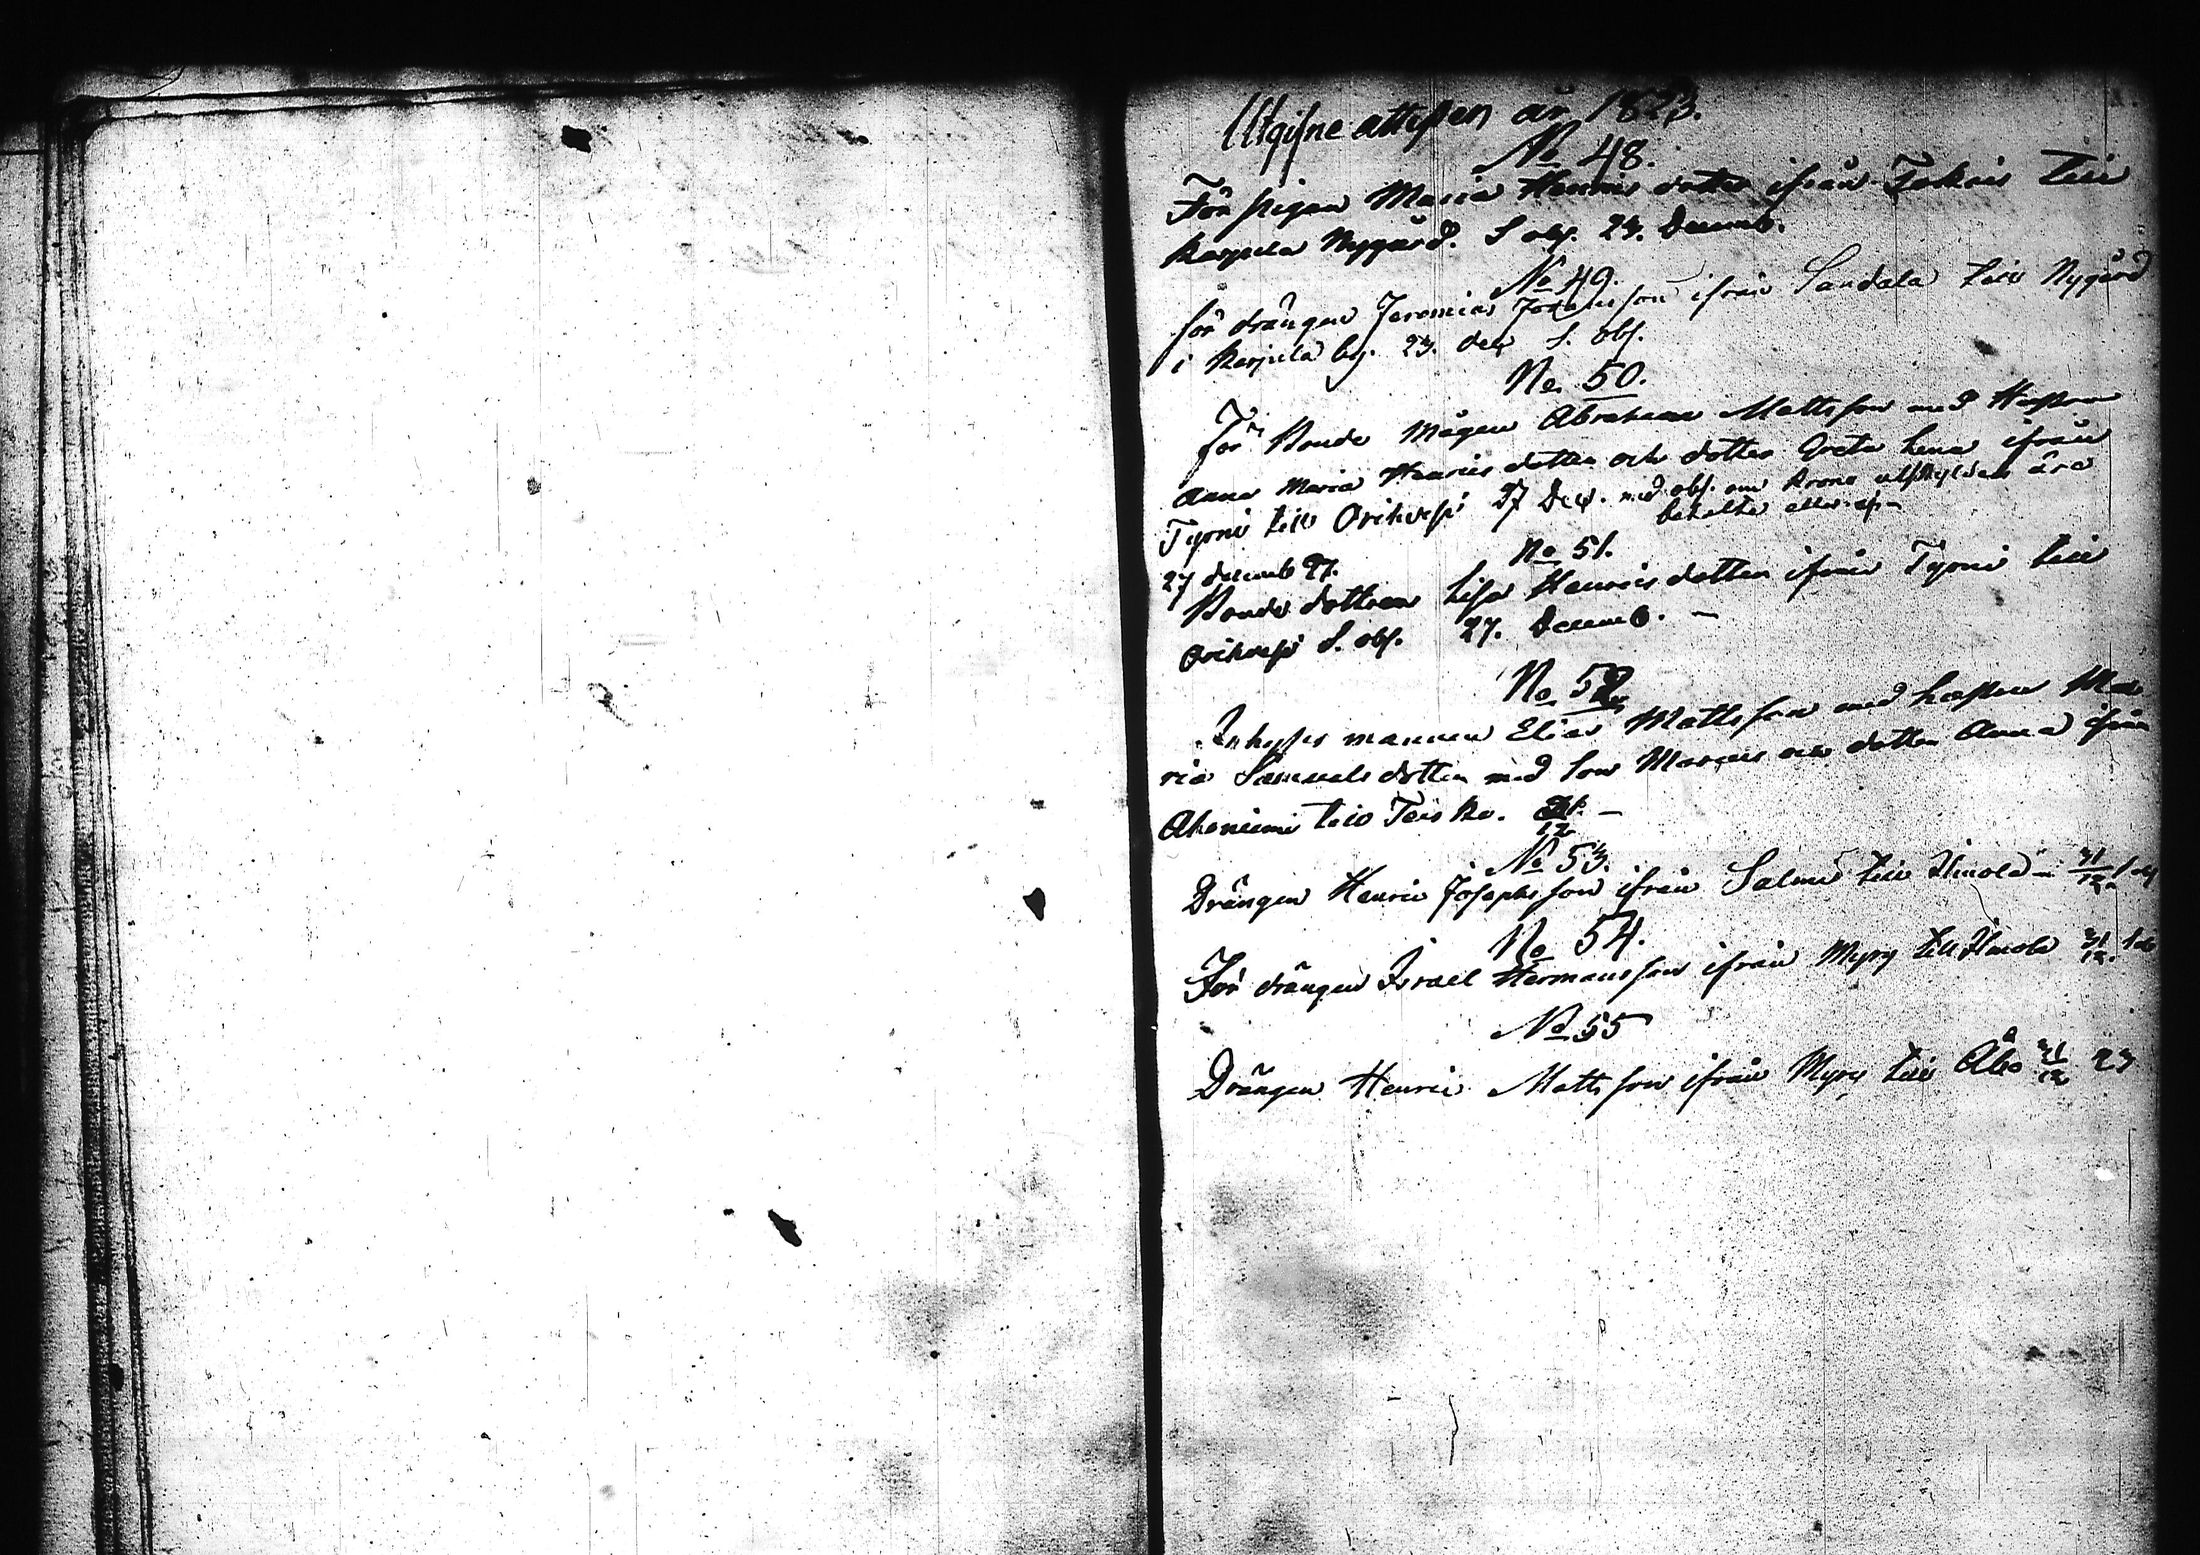 Utgifne attester år 1823.
No 48.
För pigan Maria Henrics dotter ifrån till
Karjula Nygård. S. obs. 23. Decemb.
No 49.
för drängen Jeremias Johansson ifrån Sandala till Nygård
i Karjula by. 23. Dec S. obs.
No 50.
För Bonde Mågen Abraham Mattsson med Hustru
Anna Maria Henricsdotter och dotter Greta Lena ifrån
Tyrni till Orihvesi 27 Dec. med obs. om Krono utskylder äro
betalte eller ej -
27 decemb 27.
No 51.
Bonde dottren Lisa Henricsdotter ifrån Tyrni till
Orihvesi S. obs. 27. Decemb. -
No 52
Inhyses mannen Elias Mattsson med hustru Ma
ria Samuelsdotter med Son Marcus och dotter Anna ifrån
Ahoniemi till Teisko. 31/12 -
No 53.
Drängen Henric Josephsson ifrån Salmi till Ilmola 31/12
No 54.
För drängen Israel Hermansson ifrån Myry till Ilmola 31/12.
No 55
Drängen Henric Mattsson ifrån Myry till Åbo 31/12 23